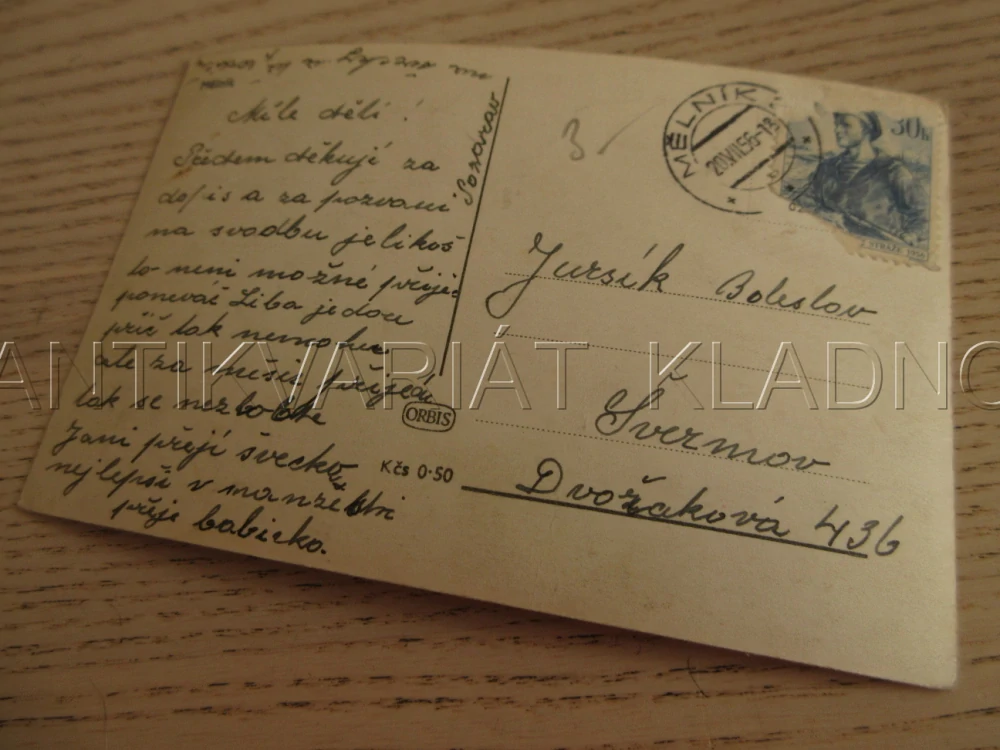 Mělník
Milé děti!
Předem děkuji za
dopis a za pozvani
na svadbu jelikoš
to neni možné přijet
poneváč Liba jedou
přič tak nemohu
ale za měsic přijedu
tak se nezlobte
Jani přeji švecko
nejlepši v manželstvi
přeje babicka.
Pozorav
ORBIS
Kčs 0·50
3
MĚLNÍK
20.VII.56-18
30h
Jursík Boleslov
Švermov
Dvořaková 436
ANTIKVARIÁT KLADNO